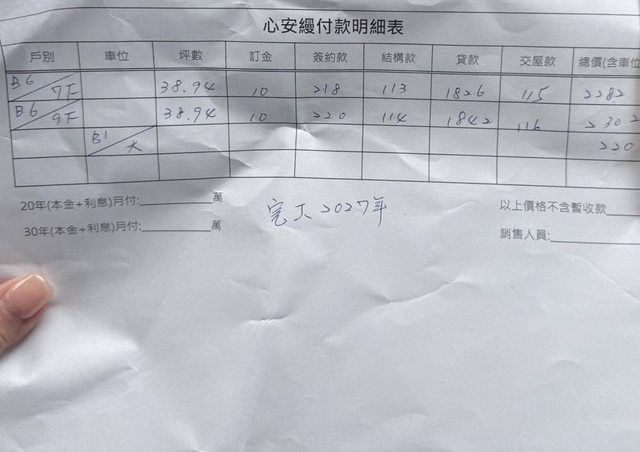 心安縵付款明細表
戶別 車位 坪數 訂金 簽約款 結構款 貸款 交屋款 總價(含車位
B6/7F 38.94 10 218 113 1826 115 2282
B6/9F 38.94 10 220 114 1842 116 2302
B1/大 220
20年(本金+利息)月付:______萬
以上價格不含暫收款
30年(本金+利息)月付:______萬
完工2027年
銷售人員: